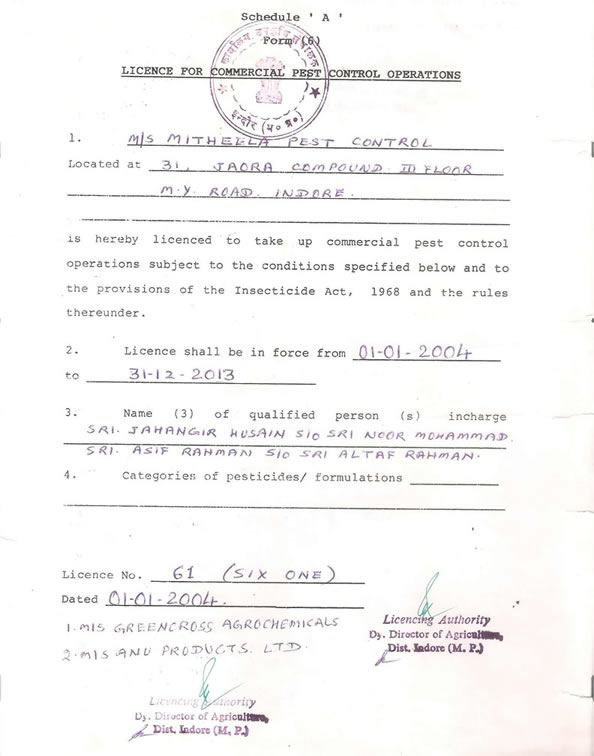 Schedule ' A '
Form (6)
LICENCE FOR COMMERCIAL PEST CONTROL OPERATIONS
इन्दौर (म० प्र०)
1. M/S MITHEELA PEST CONTROL
Located at 31, JAORA COMPOUND III FLOOR
M.Y. ROAD. INDORE.
is hereby licenced to take up commercial pest control
operations subject to the conditions specified below and to
the provisions of the Insecticide Act, 1968 and the rules
thereunder.
2. Licence shall be in force from 01-01-2004
to 31-12-2013
3. Name (3) of qualified person (s) incharge
SRI. JAHANGIR HUSAIN S/O SRI NOOR MOHAMMAD.
SRI. ASIF RAHMAN S/O SRI ALTAF RAHMAN.
4. Categories of pesticides/ formulations
Licence No. 61 (SIX ONE)
Dated 01-01-2004.
1. M/S GREENCROSS AGROCHEMICALS
2. M/S ANU PRODUCTS. LTD.
Licencing Authority
Dy. Director of Agriculture,
Dist. Indore (M. P.)
Licencing Authority
Dy. Director of Agriculture,
Dist. Indore (M. P.)